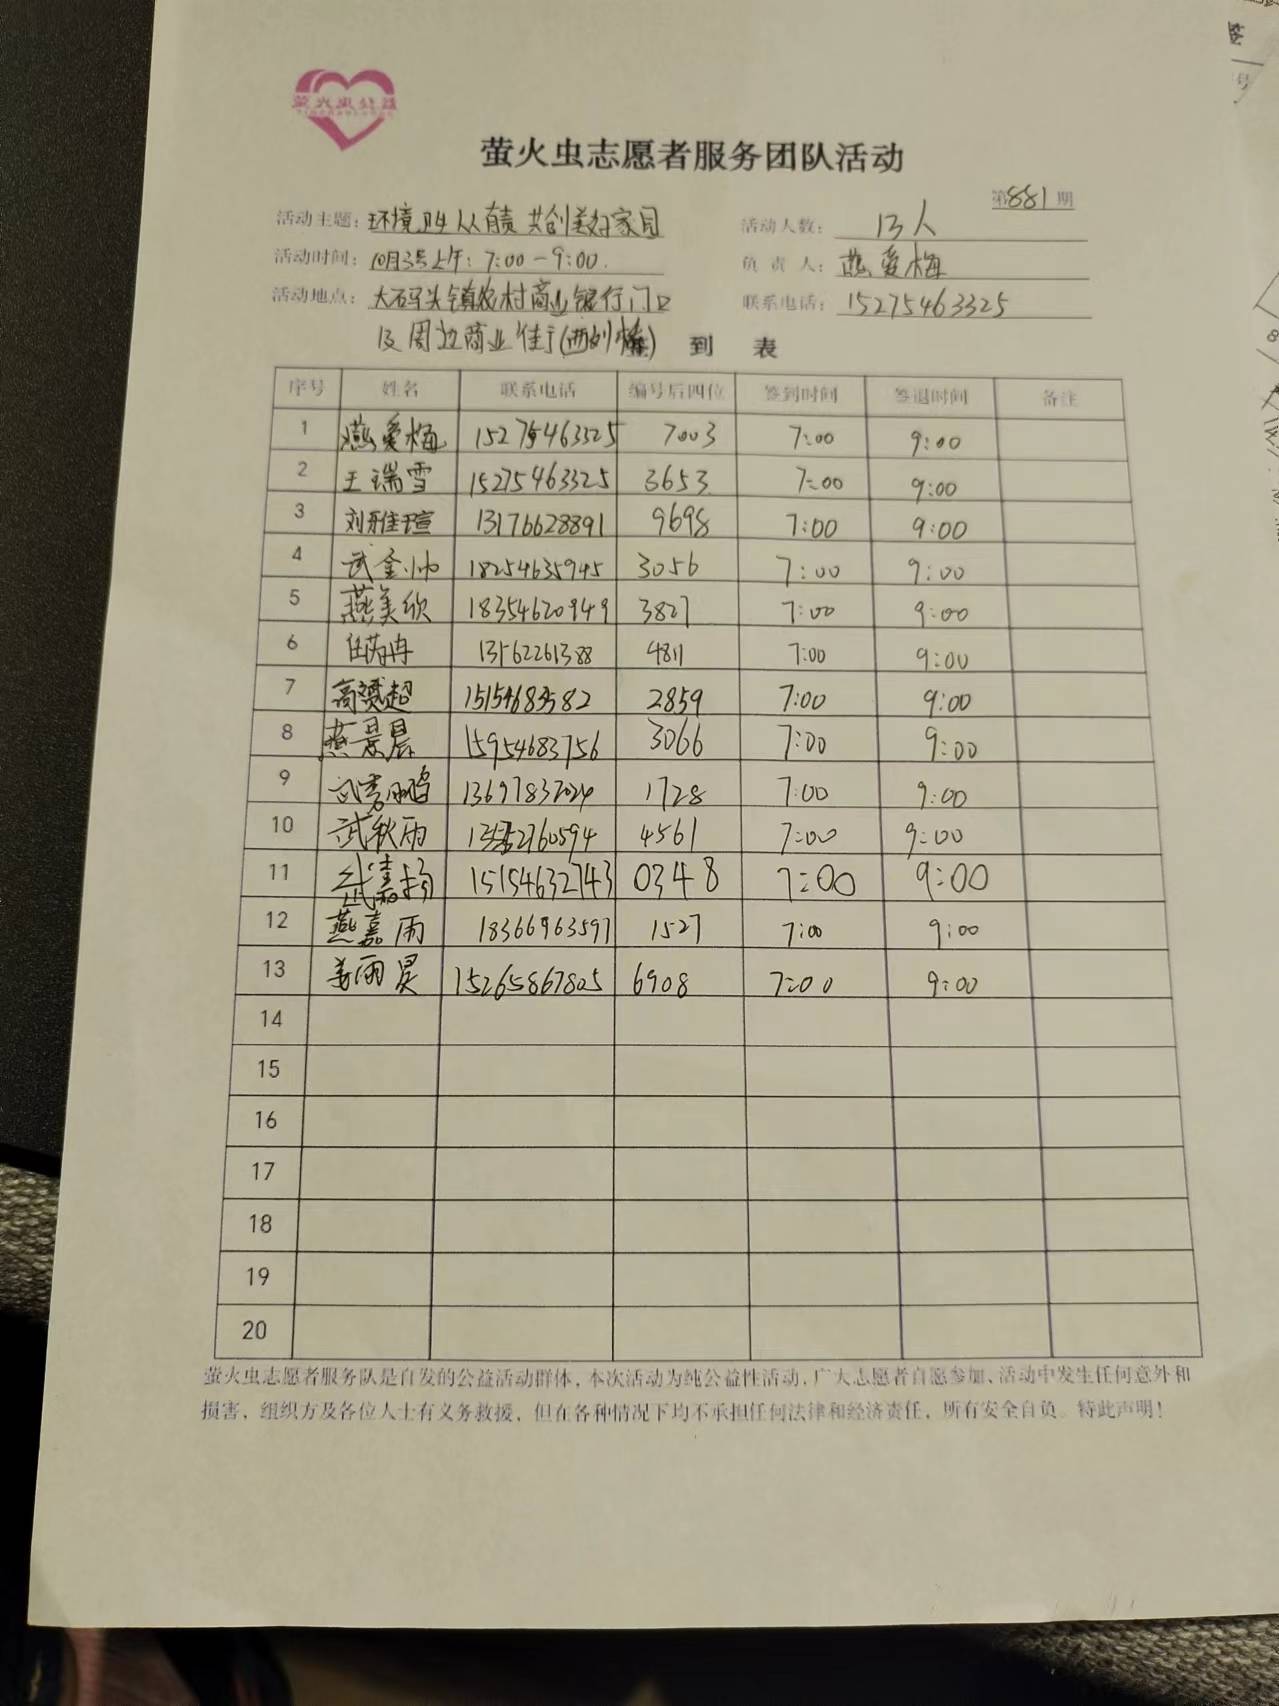 萤火虫公益
萤火虫志愿者服务团队活动
第881期
活动主题: 环境卫生人人有责 共创美好家园 活动人数: 13人
活动时间: 10月3号上午: 7:00-9:00. 负责人: 燕爱梅
活动地点: 大码头镇农村商业银行门口 联系电话: 15275463325
及周边商业街(西刘桥)
到 表
序号 姓名 联系电话 编号后四位 签到时间 签退时间 备注
1 燕爱梅 15275463325 7003 7:00 9:00
2 王瑞雪 15275463325 3653 7:00 9:00
3 刘雅瑄 13176628891 9698 7:00 9:00
4 武金帅 18254635945 3056 7:00 9:00
5 燕美欣 18354620949 3827 7:00 9:00
6 任芮冉 13562261388 4811 7:00 9:00
7 高赟超 15154683582 2859 7:00 9:00
8 燕景晨 15954683756 3066 7:00 9:00
9 13697837024 1728 7:00 9:00
10 武秋雨 4561 7:00 9:00
11 武嘉扬 15154632743 0348 7:00 9:00
12 燕嘉雨 18366963597 1527 7:00 9:00
13 姜雨昊 15265867805 6908 7:00 9:00
14
15
16
17
18
19
20
萤火虫志愿者服务队是自发的公益活动群体，本次活动为纯公益性活动，广大志愿者自愿参加、活动中发生任何意外和
损害，组织方及各位人士有义务救援，但在各种情况下均不承担任何法律和经济责任，所有安全自负。特此声明！